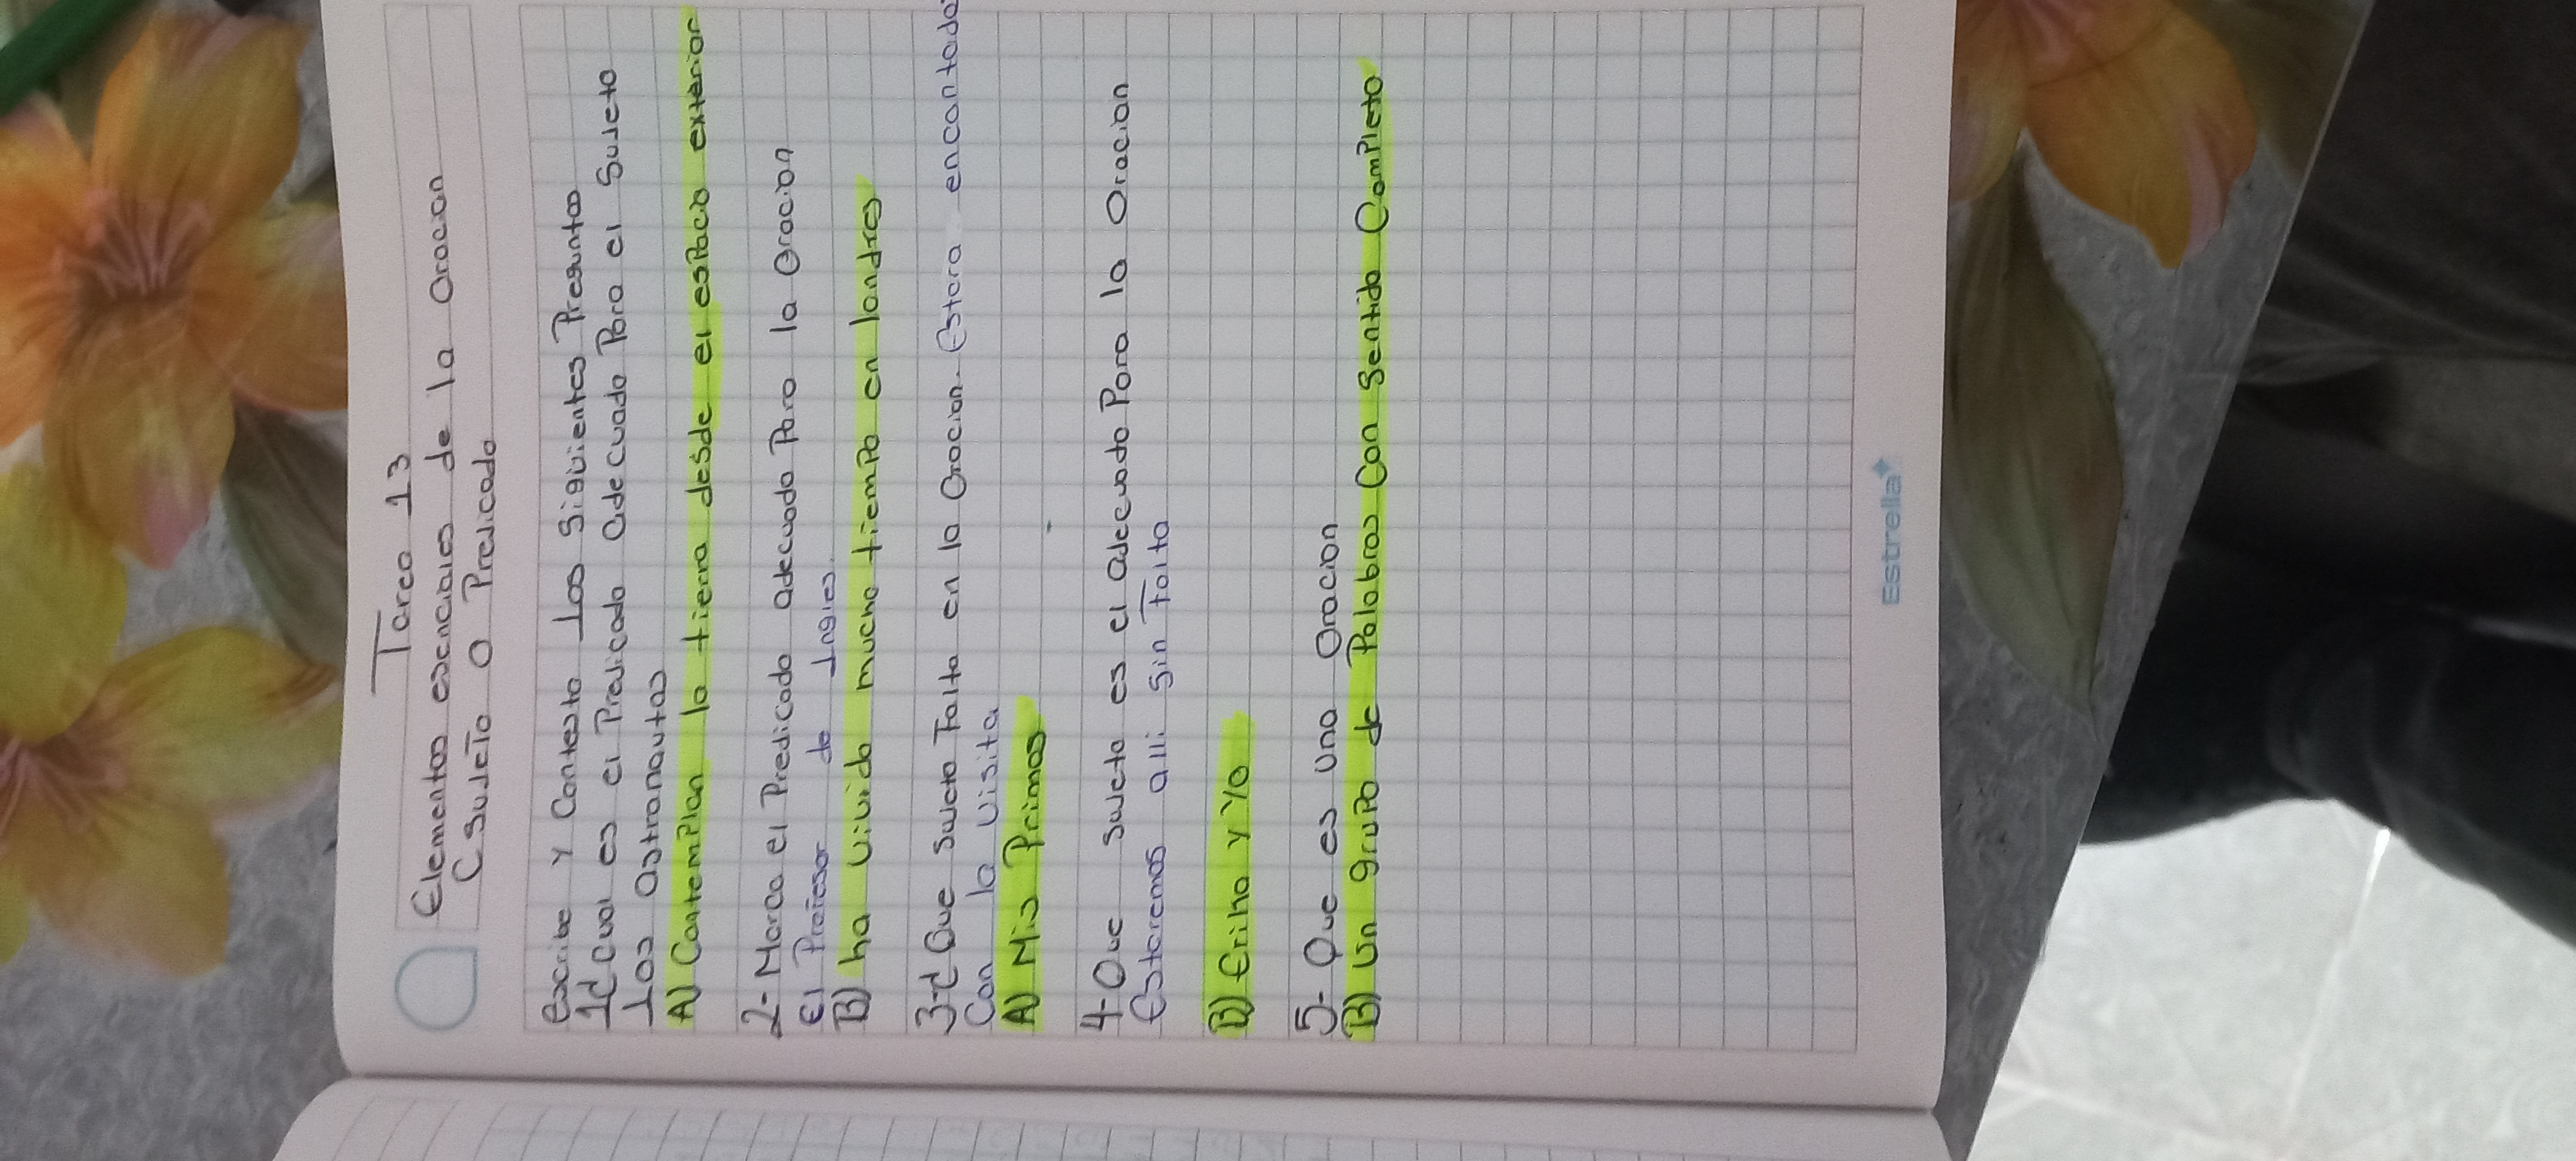 Tarea 13
Elementos esenciales de la Oracion
(Sujeto O Predicado
Escribe y Contesta Las Siguientes Preguntas
1¿Cual es el Predicado Adecuado Para el Sujeto
Los Astronautas
A) Contemplan la tierra desde el espacio exterior
2- Marca el Predicado adecuado Para la Oracion
El Profesor de Ingles.
B) ha vivido mucho tiempo en londres
3-¿Que Sujeto Falta en la Oracion. Estara encantado
Con la visita
A) Mis Primos
4- Que Sujeto es el adecuado Para la Oracion
Estaremos alli Sin Falta
B) Erika y Yo
5- Que es Una Oracion
B) Un grupo de Palabras Con Sentido Completo
Estrella